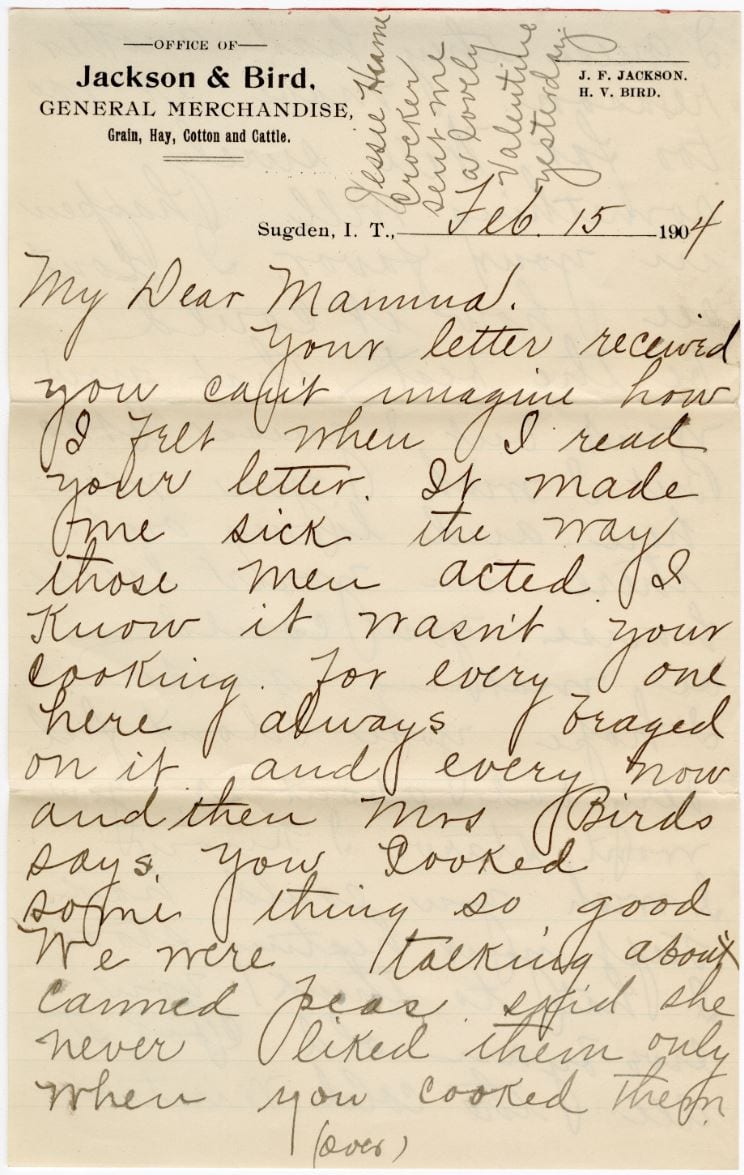 OFFICE OF
Jackson & Bird,
GENERAL MERCHANDISE,
Grain, Hay, Cotton and Cattle.
J. F. JACKSON.
H. V. BIRD.
Jessie Hearne
Crocker
sent me
a lovely
Valentine
yesterday
Sugden, I. T., Feb. 15 1904
My Dear Mamma.
Your letter received
you can't imagine how
I felt when I read
your letter. It made
me sick the way
those men acted. I
Know it wasn't your
cooking. for every one
here always braged
on it and every now
and then Mrs Birds
says, you cooked
some thing so good
We were talking about
canned peas said she
never liked them only
when you cooked them
(over)